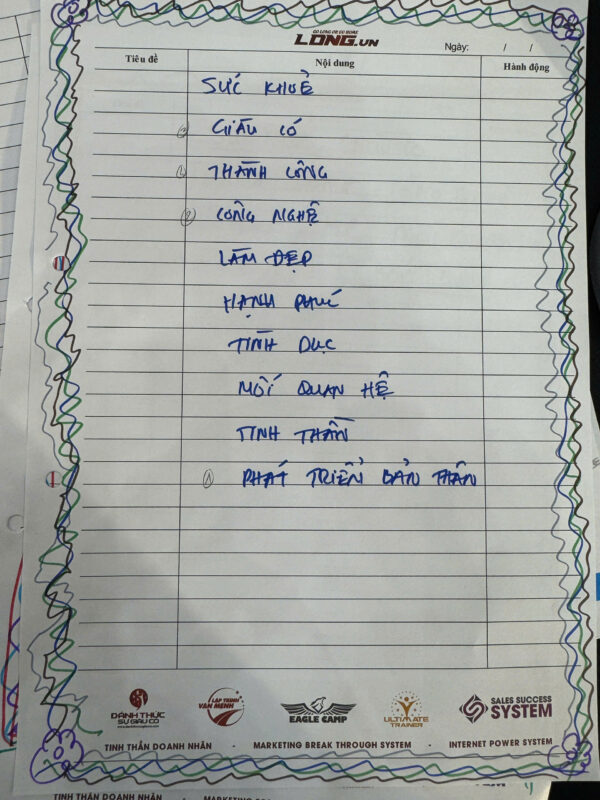 GO LONG OR GO HOME
LONG.VN
Ngày: / /
Tiêu đề Nội dung Hành động
SỨC KHOẺ
③ GIÀU CÓ
④ THÀNH CÔNG
② CÔNG NGHỆ
LÀM ĐẸP
HẠNH PHÚC
TÌNH DỤC
MỐI QUAN HỆ
TINH THẦN
① PHÁT TRIỂN BẢN THÂN
ĐÁNH THỨC SỰ GIÀU CÓ
LẬP TRÌNH VẬN MỆNH
EAGLE CAMP
ULTIMATE TRAINER
SALES SUCCESS SYSTEM
TINH THẦN DOANH NHÂN - MARKETING BREAK THROUGH SYSTEM - INTERNET POWER SYSTEM
TINH THẦN DOANH NHÂN